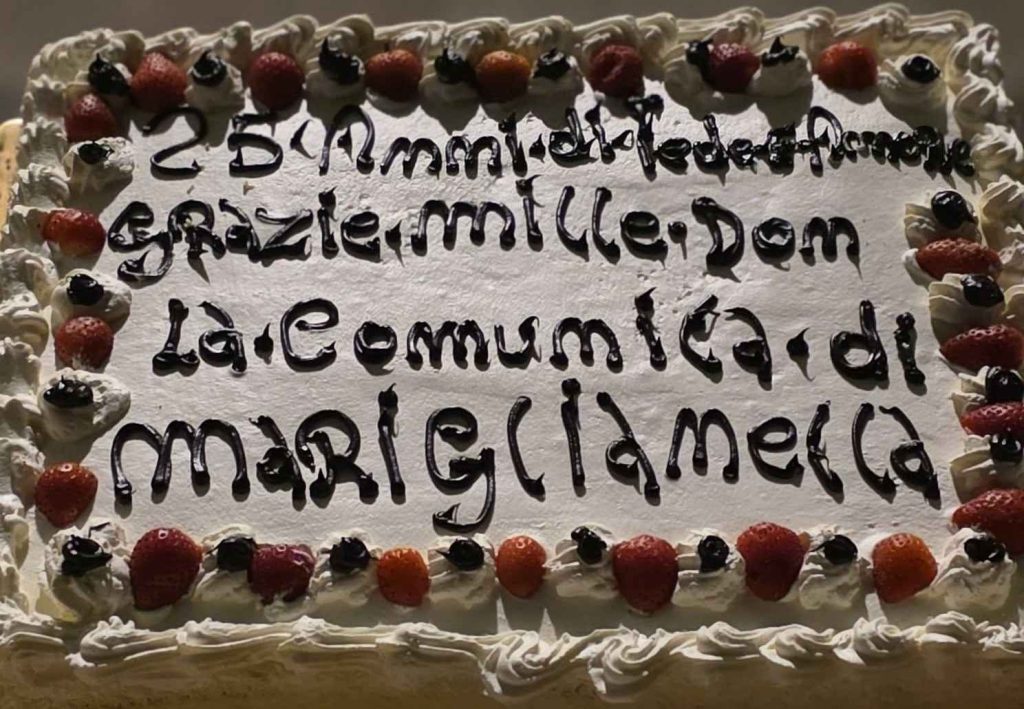 25 Anni di Fede e Amore
Grazie mille Don
La Comunita di
MARIGLIANELLA